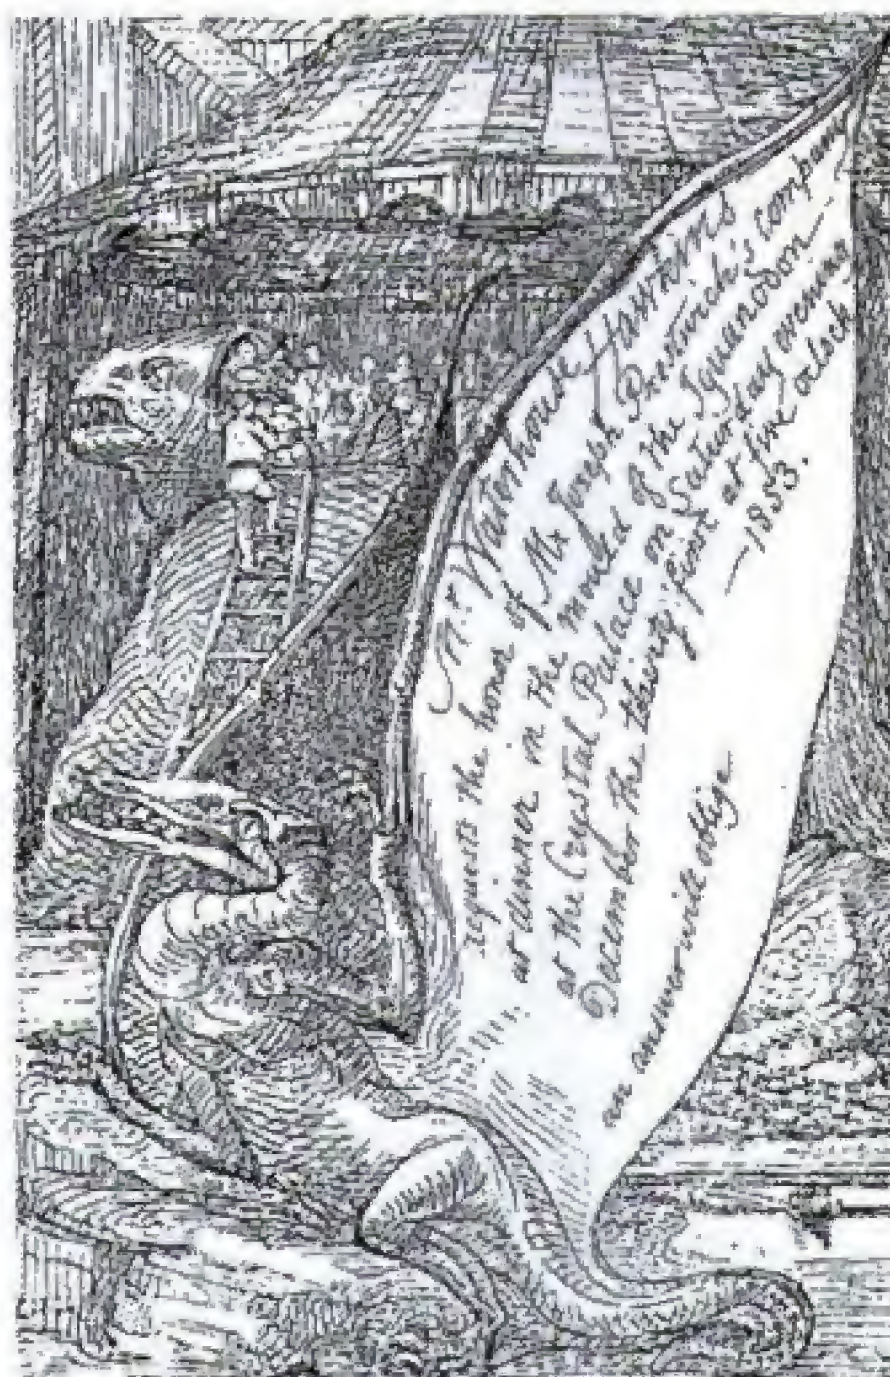 Mr. Waterhouse Hawkins
requests the honor of Mr Joseph Prestwich's company
at dinner in the mould of the Iguanodon
at the Crystal Palace on Saturday evening
December the thirty-first at five o'clock
—1853.
an answer will oblige